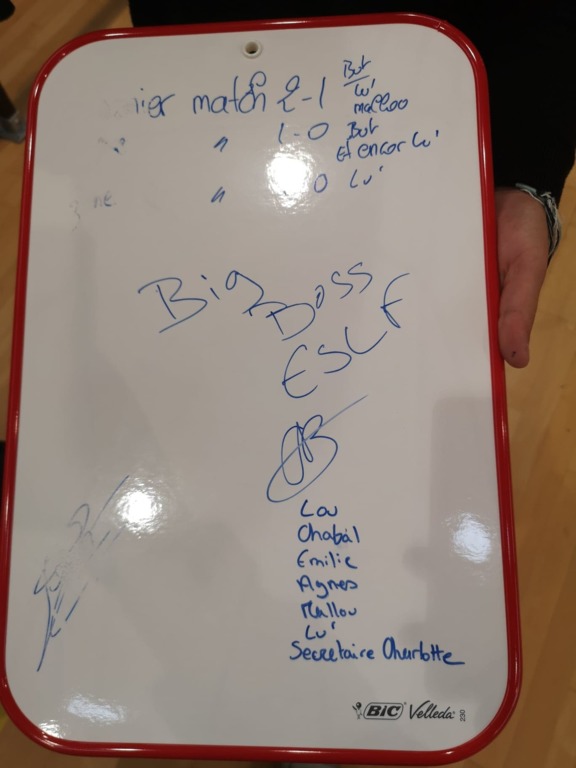 ier match 2-1 But
Lu'
malloo
" " 1-0 But
Et encor Lu'
3 ne " 0 Lu'
Big Boss
ESLF
Lou
Chabal
Emilie
Agnes
Mallou
Lu'
Secretaire Charlotte
BIC Velleda